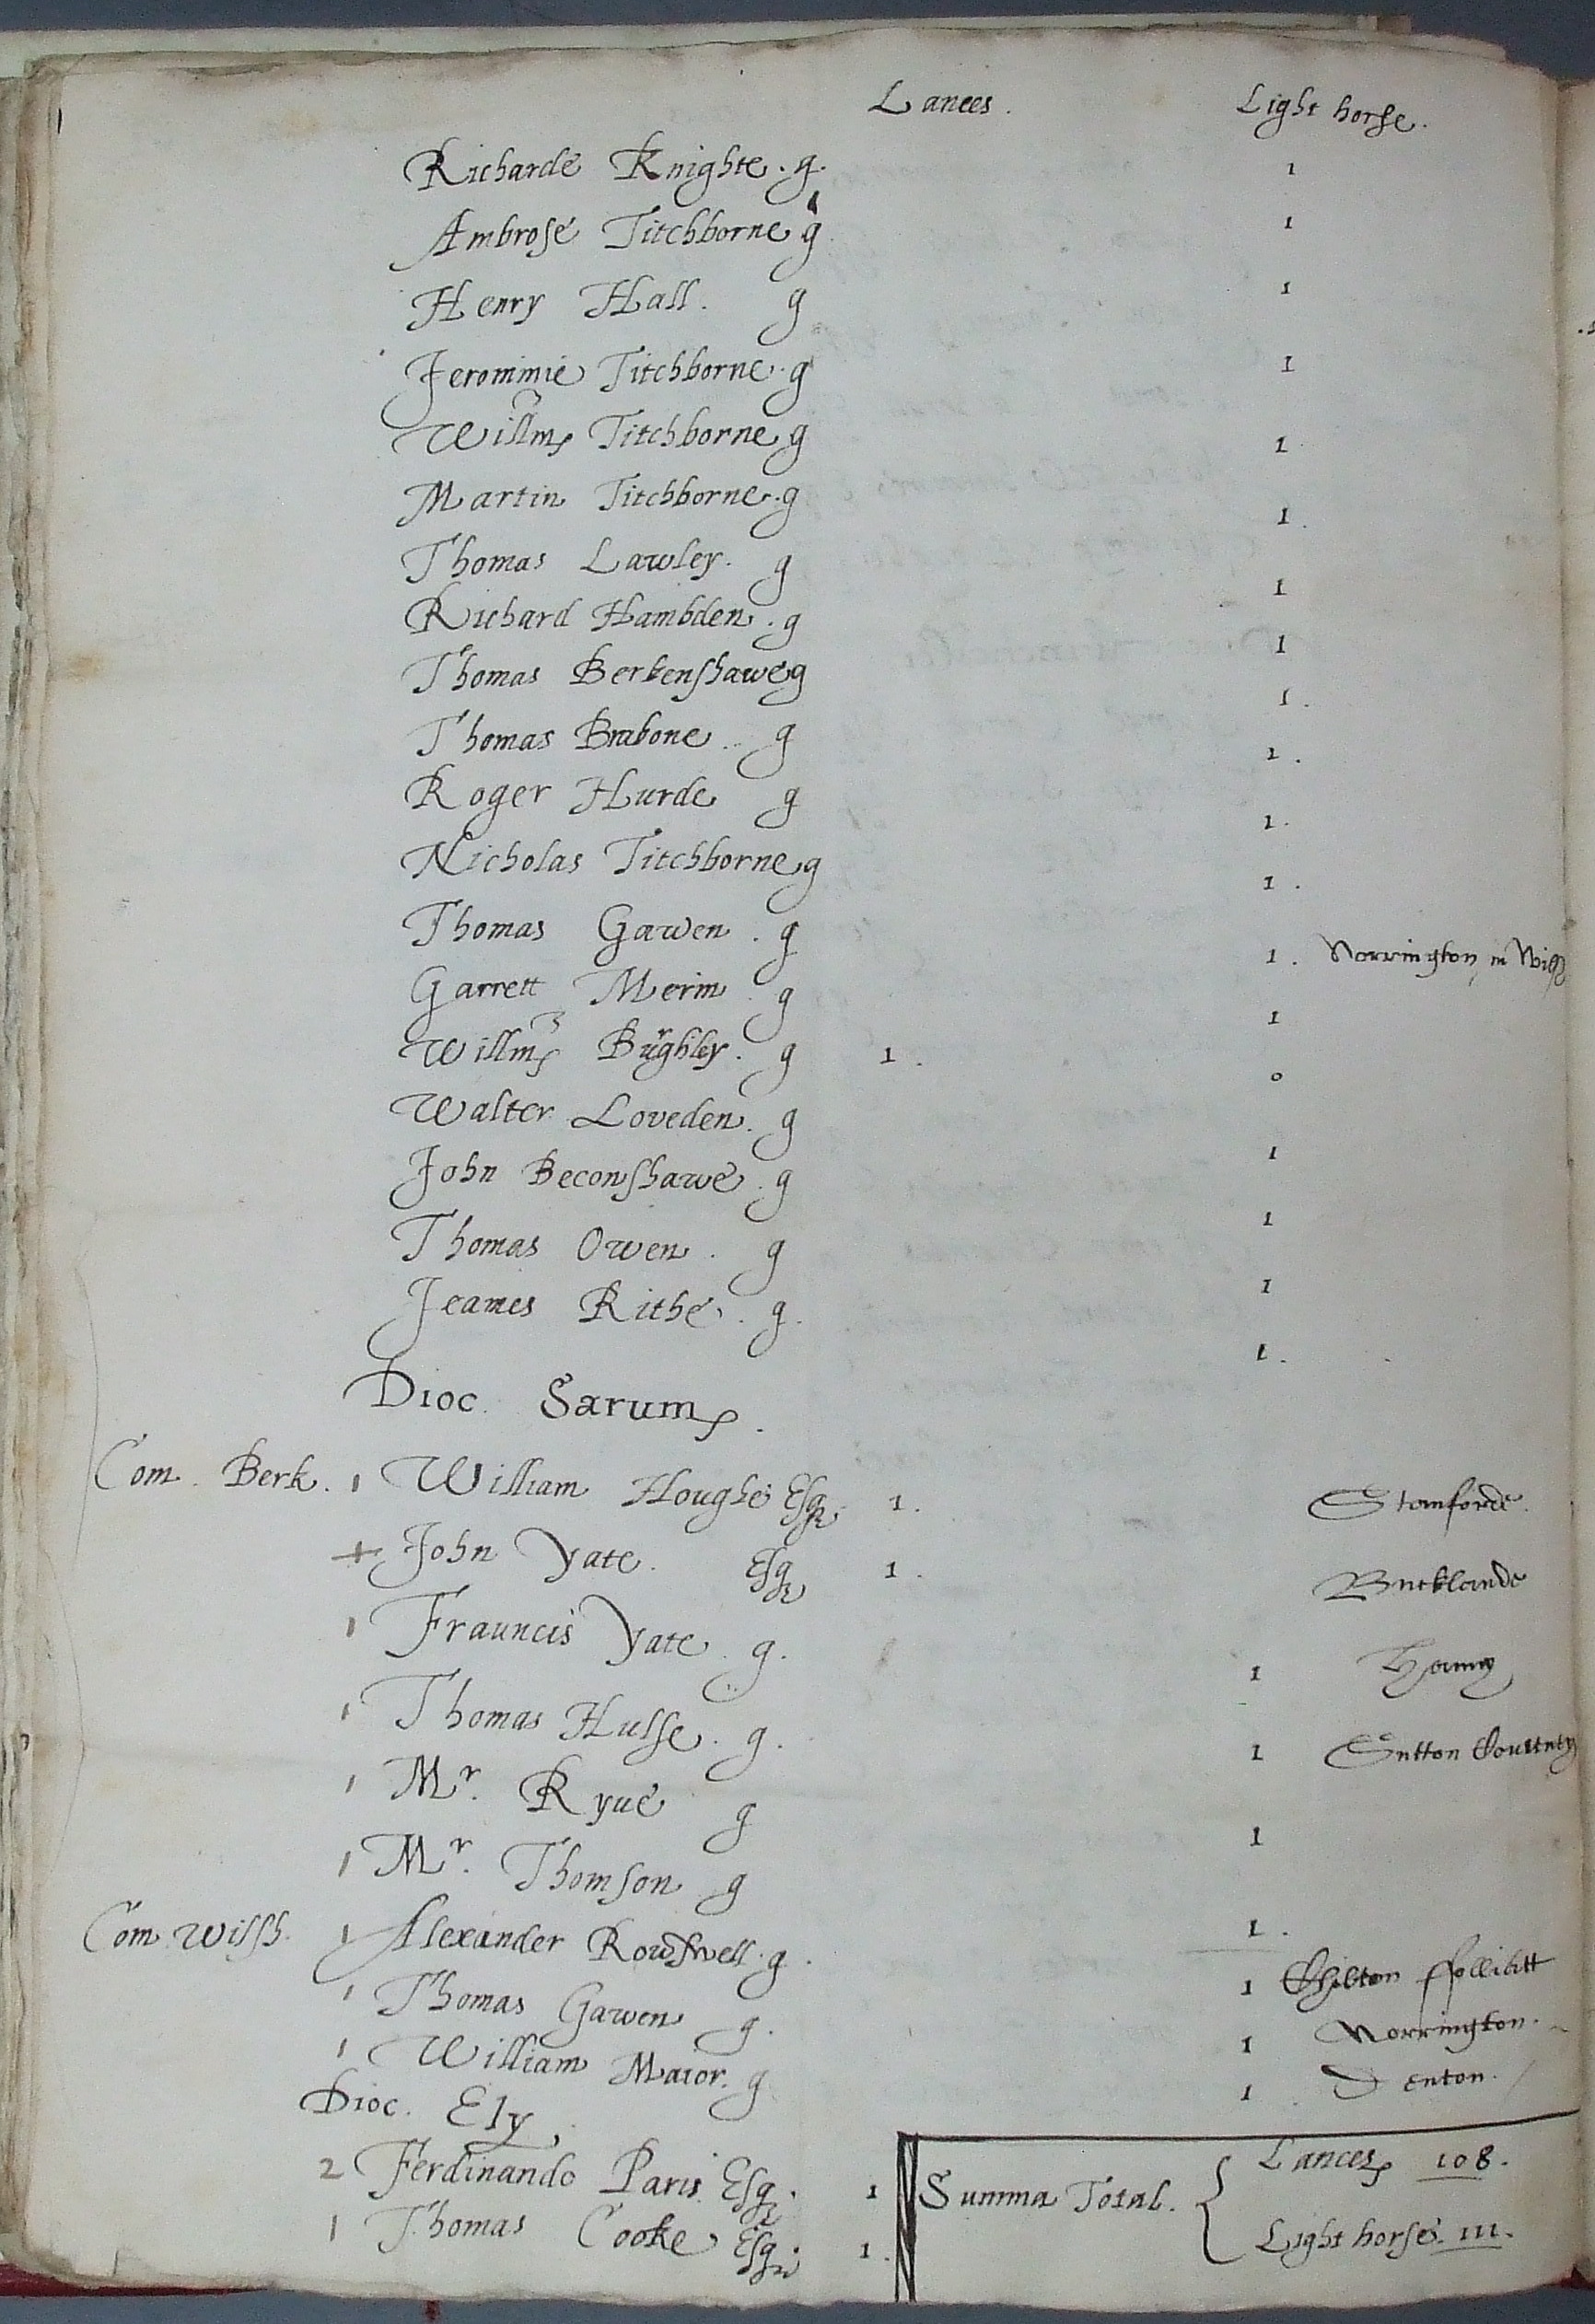 Lances. Light horse.
Richarde Knighte. g. 1
Ambrose Titchborne g 1
Henry Hall. g 1
Jerommie Titchborne. g 1
Willm Titchborne g 1
Martin Titchborne. g 1.
Thomas Lawley. g 1
Richard Hambden. g 1
Thomas Berkenshawe g 1.
Thomas Brabone. g 1.
Roger Hurde g 1.
Nicholas Titchborne g 1.
Thomas Gawen. g 1. Norrington in
Garrett Merin g 1
Willm Burghley. g 1. 0
Walter Loveden. g 1
John Beconshawe. g 1
Thomas Owen. g 1
Jeames Rithe. g. 1.
Dioc. Sarum.
Com. Berk. 1 William Houghe Esq 1. Stamforde.
+ John Yate. Esq 1. Bucklande
1 Frauncis Yate. g. 1 Hanny
1 Thomas Hulse. g. 1 Sutton Courtney
1 Mr. Ryue g 1
1 Mr. Thomson g 1.
Com. Wilsh. 1 Alexander g. 1 Chilton ffollikitt
1 Thomas Gawen g. 1 Norrington.
1 William Maior. g 1 Denton.
Dioc. Ely
2 Ferdinando Paris. Esq. 1
1 Thomas Cooke Esq. 1.
Summa Total. { Lances 108.
Light horse. 111.